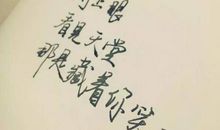 上眼
看見天堂
那是藏着你笑